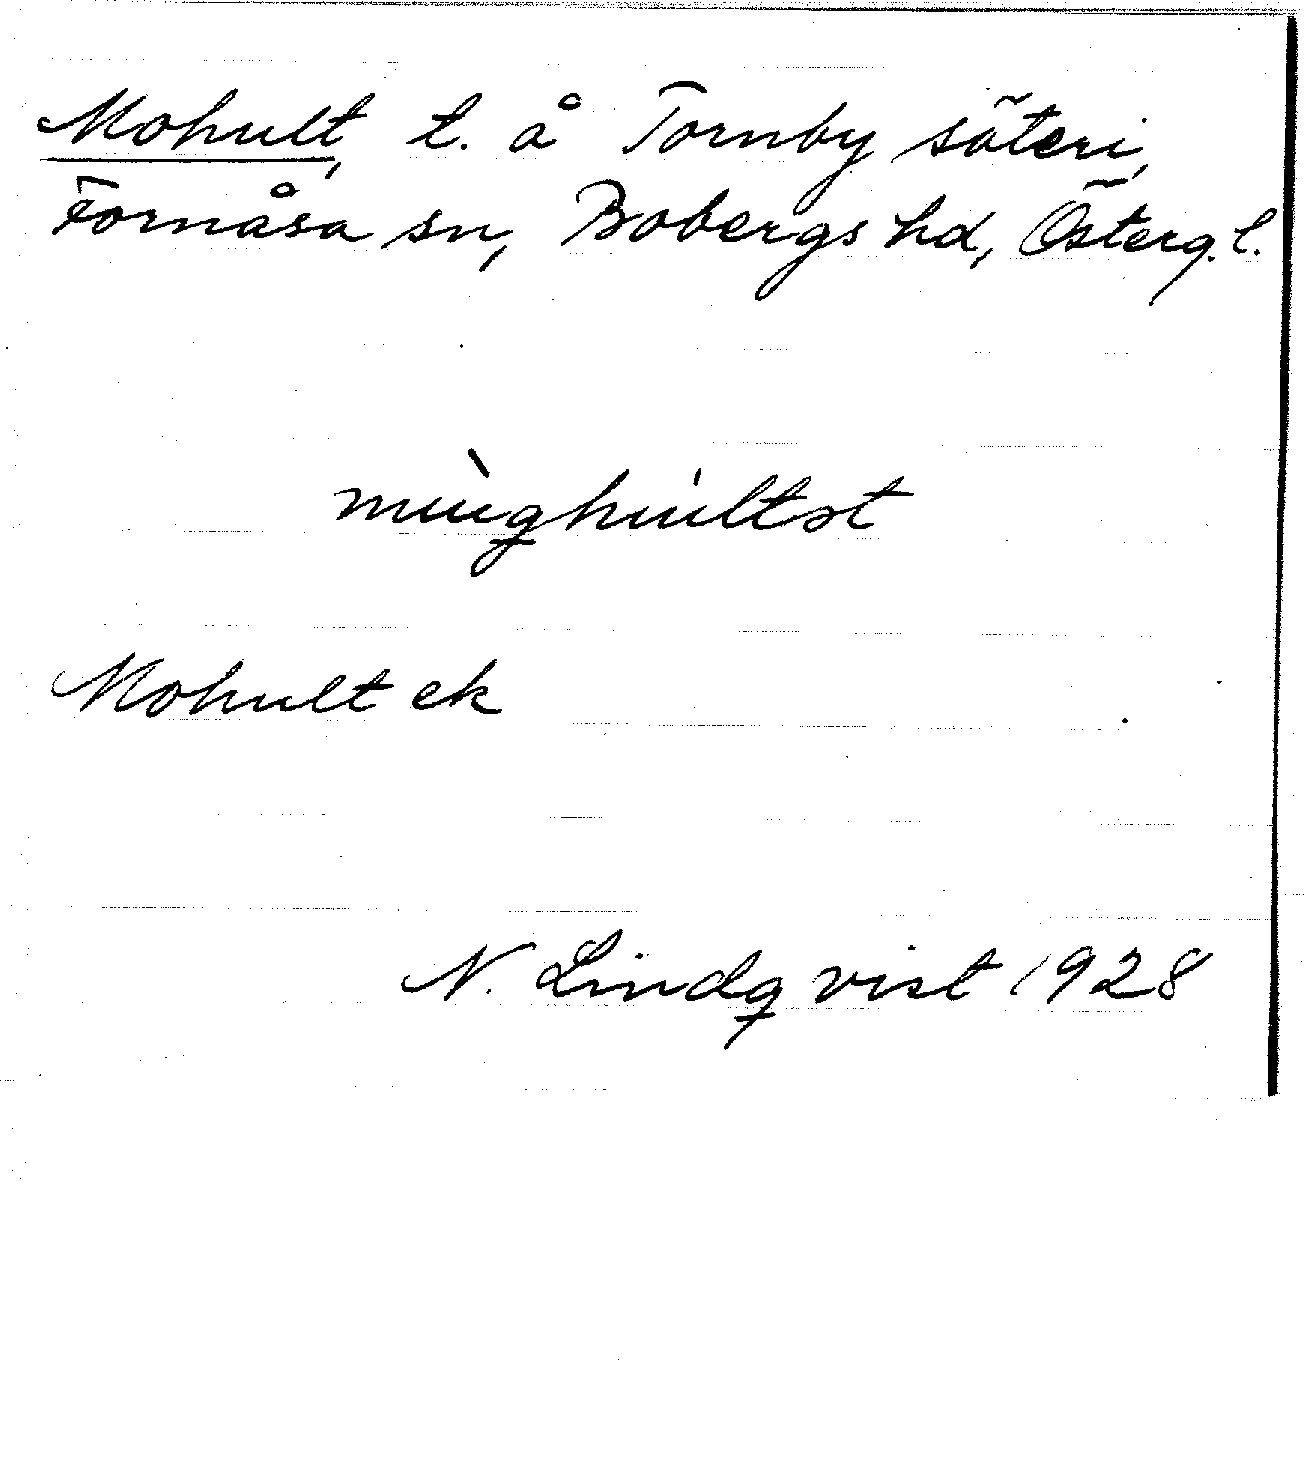 Mohult, t. å Tornby säteri,
Fornåsa sn, Bobergs hd, Österg. l.
Mohult ek
N. Lindqvist 1928